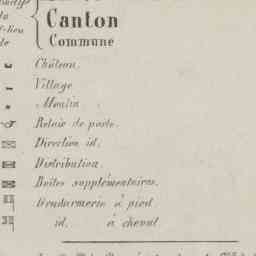 Canton
Commune
Château.
Village
Moulin
Relais de poste.
Direction id.
Distribution.
Boîtes supplémentaires.
Gendarmerie à pied
id. à cheval.